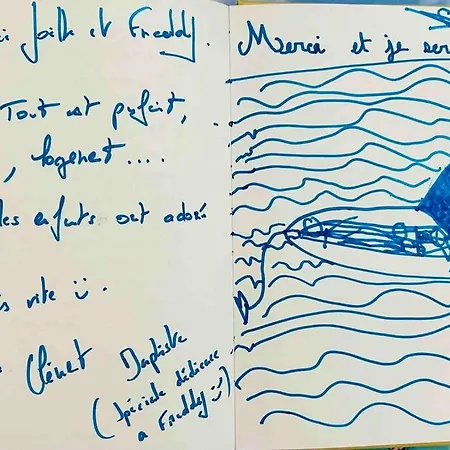 Joëlle et Freddy.
Tout est parfait,
, logement....
les enfants ont adoré
s vite ü.
Clénet Baptiste
(Spéciale dédicace
a Freddy ü)
Merci et je ser